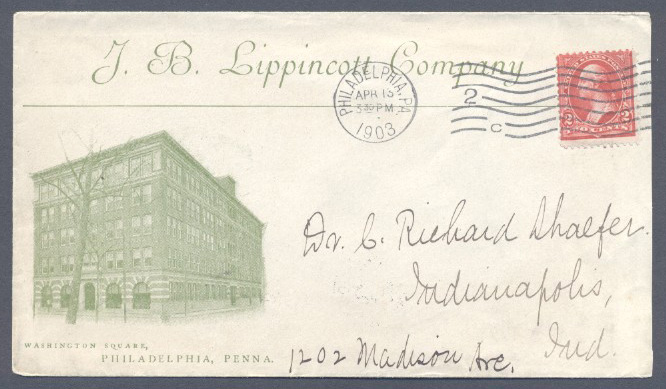 J. B. Lippincott Company
PHILADELPHIA, PA.
APR 13
3 30 PM
1903
2
C
2 2
CENTS
Dr. C. Richard Shaefer.
Indianapolis,
Ind.
1202 Madison Ave.
WASHINGTON SQUARE,
PHILADELPHIA, PENNA.